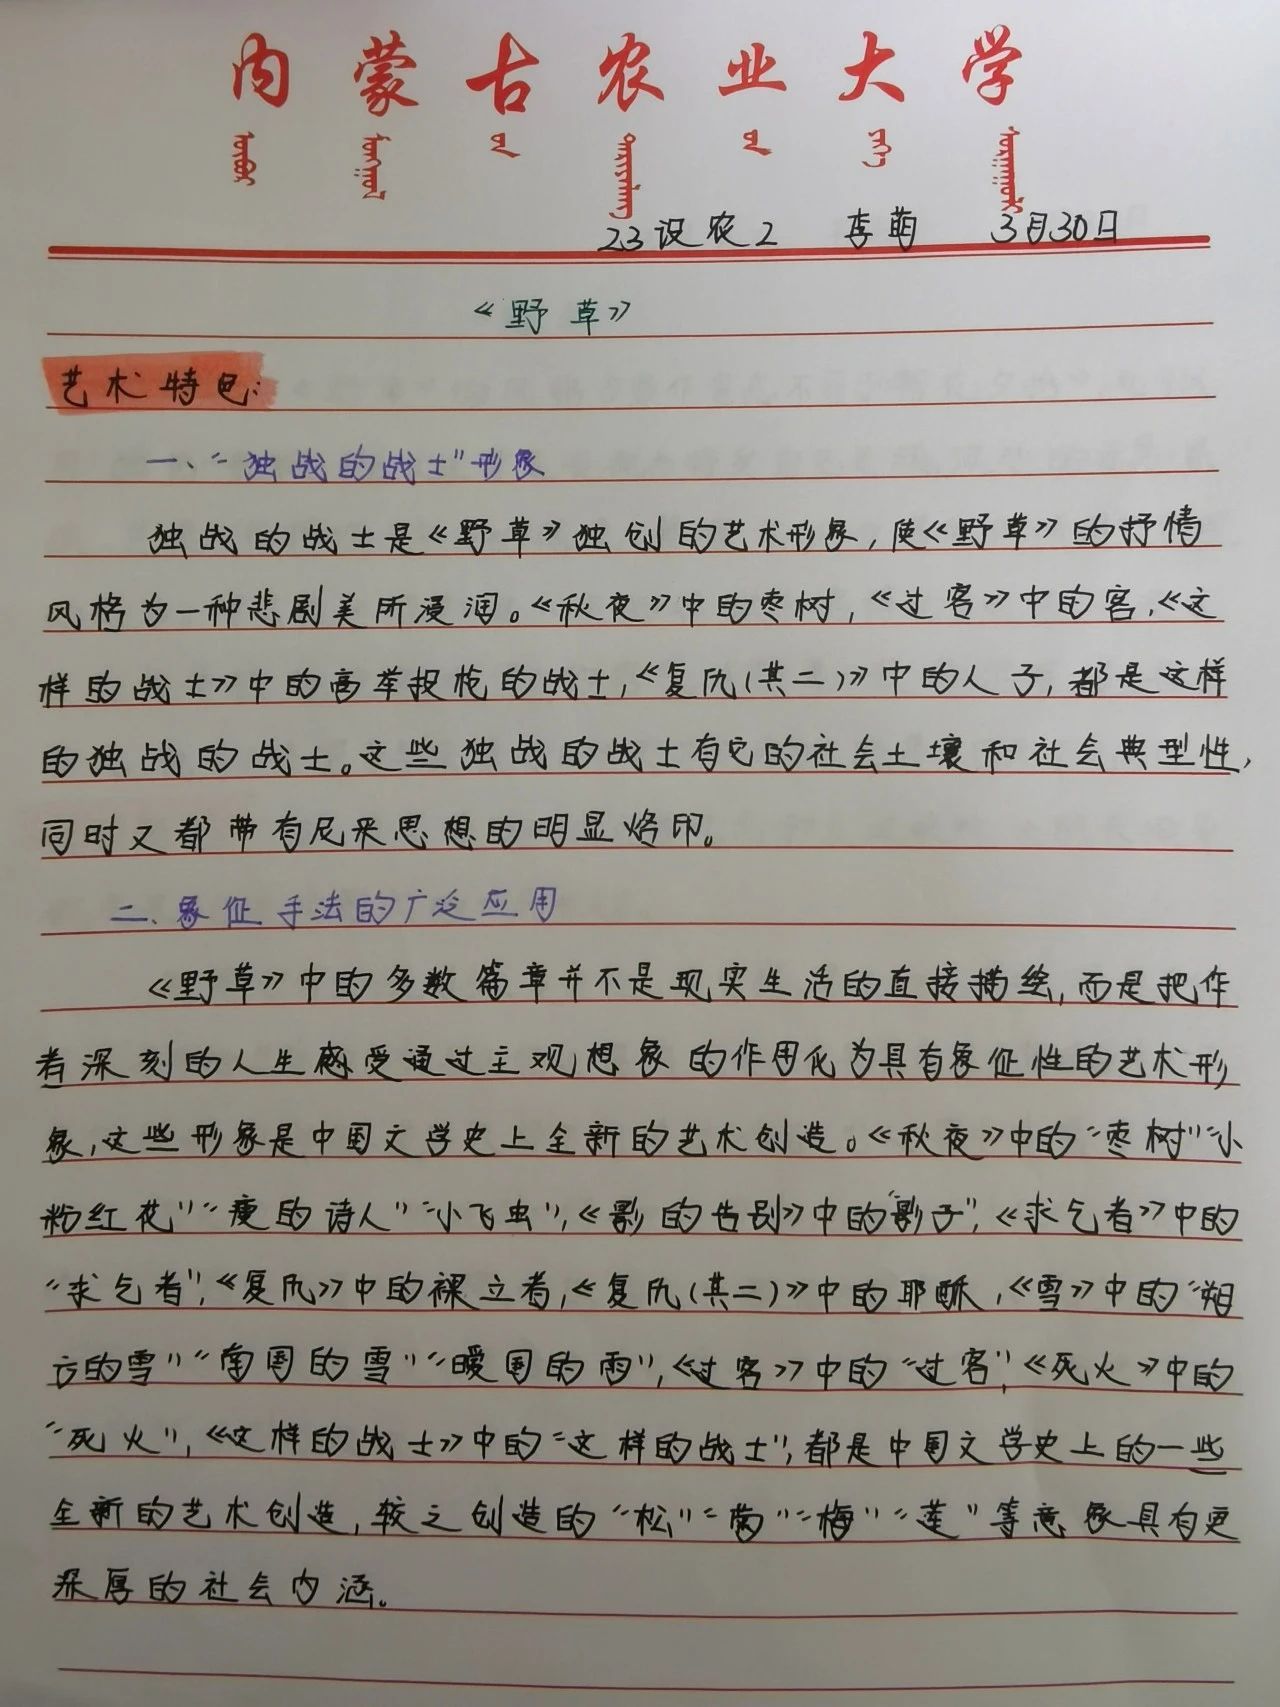 内蒙古农业大学
23设农2 李萌 3月30日
《野草》
艺术特色:
一、“独战的战士”形象
独战的战士是《野草》独创的艺术形象,使《野草》的抒情
风格为一种悲剧美所浸润。《秋夜》中的枣树,《过客》中的客,《这
样的战士》中的高举投枪的战士,《复仇(其二)》中的人子,都是这样
的独战的战士。这些独战的战士有它的社会土壤和社会典型性,
同时又都带有尼采思想的明显烙印。
二、象征手法的广泛应用
《野草》中的多数篇章并不是现实生活的直接描绘,而是把作
者深刻的人生感受通过主观想象的作用化为具有象征性的艺术形
象,这些形象是中国文学史上全新的艺术创造。《秋夜》中的“枣树”“小
粉红花”“瘦的诗人”“小飞虫”,《影的告别》中的“影子”,《求乞者》中的
“求乞者”,《复仇》中的裸立者,《复仇(其二)》中的耶稣,《雪》中的“朔
方的雪”“南国的雪”“暖国的雨”,《过客》中的“过客”,《死火》中的
“死火”,《这样的战士》中的“这样的战士”,都是中国文学史上的一些
全新的艺术创造,较之创造的“松”“菊”“梅”“莲”等意象具有更
深厚的社会内涵。